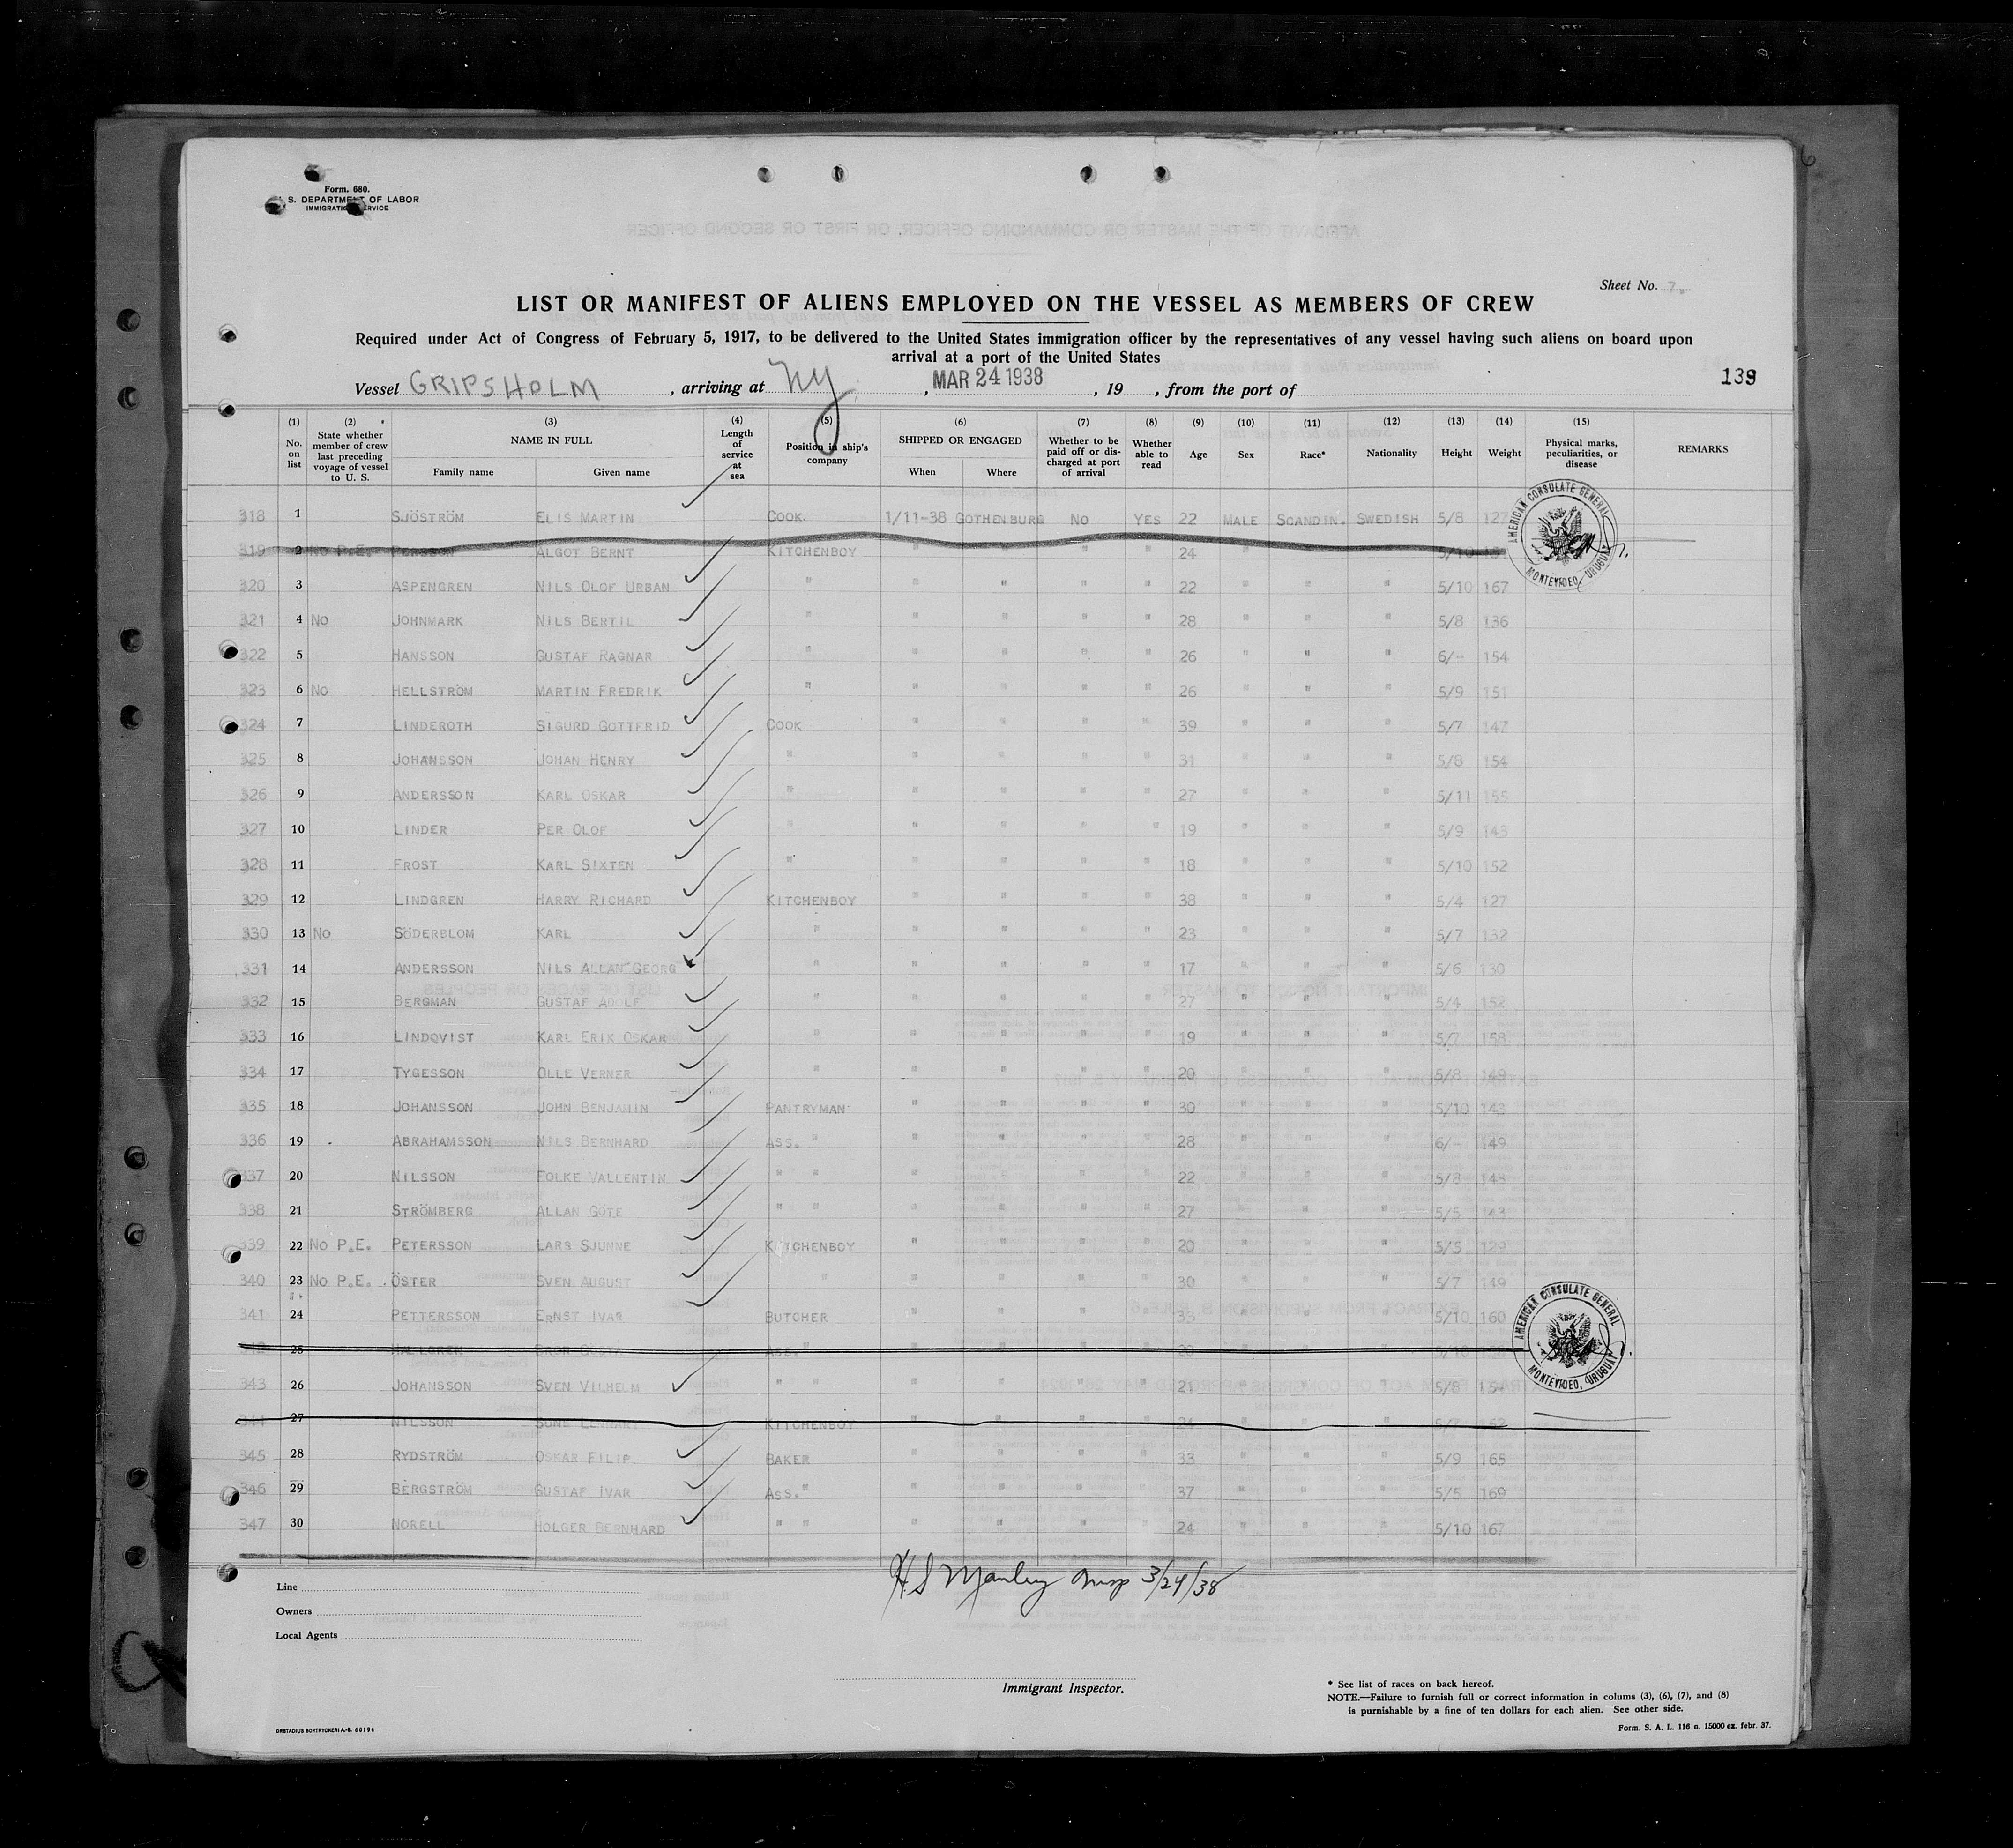 Form. 680.
S. DEPARTMENT OF LABOR
IMMIGRATION SERVICE
Sheet No. 7.
LIST OR MANIFEST OF ALIENS EMPLOYED ON THE VESSEL AS MEMBERS OF CREW
Required under Act of Congress of February 5, 1917, to be delivered to the United States immigration officer by the representatives of any vessel having such aliens on board upon
arrival at a port of the United States
Vessel GRIPSHOLM , arriving at NY , MAR 24 1938 , 19 , from the port of
139
(1) No. on list (2) State whether member of crew last preceding voyage of vessel to U. S. (3) NAME IN FULL Family name Given name (4) Length of service at sea (5) Position in ship's company (6) SHIPPED OR ENGAGED When Where (7) Whether to be paid off or discharged at port of arrival (8) Whether able to read (9) Age (10) Sex (11) Race* (12) Nationality (13) Height (14) Weight (15) Physical marks, peculiarities, or disease REMARKS
318 1 SJÖSTRÖM ELIS MARTIN COOK 1/11-38 GOTHENBURG NO YES 22 MALE SCANDIN. SWEDISH 5/8 127
319 2 NO P.E. PERSSON ALGOT BERNT KITCHENBOY " " " " 24 " " " 5/10
320 3 ASPENGREN NILS OLOF URBAN " " " " " 22 " " " 5/10 167
321 4 NO JOHNMARK NILS BERTIL " " " " " 28 " " " 5/8 136
322 5 HANSSON GUSTAF RAGNAR " " " " " 26 " " " 6/- 154
323 6 NO HELLSTRÖM MARTIN FREDRIK " " " " " 26 " " " 5/9 151
324 7 LINDEROTH SIGURD GOTTFRID COOK " " " " 39 " " " 5/7 147
325 8 JOHANSSON JOHAN HENRY " " " " " 31 " " " 5/8 154
326 9 ANDERSSON KARL OSKAR " " " " " 27 " " " 5/11 155
327 10 LINDER PER OLOF " " " " " 19 " " " 5/9 143
328 11 FROST KARL SIXTEN " " " " " 18 " " " 5/10 152
329 12 LINDGREN HARRY RICHARD KITCHENBOY " " " " 38 " " " 5/4 127
330 13 NO SÖDERBLOM KARL " " " " " 23 " " " 5/7 132
331 14 ANDERSSON NILS ALLAN GEORG " " " " " 17 " " " 5/6 130
332 15 BERGMAN GUSTAF ADOLF " " " " " 27 " " " 5/4 152
333 16 LINDQVIST KARL ERIK OSKAR " " " " " 19 " " " 5/7 158
334 17 TYGESSON OLLE VERNER " " " " " 20 " " " 5/8 149
335 18 JOHANSSON JOHN BENJAMIN PANTRYMAN " " " " 30 " " " 5/10 143
336 19 ABRAHAMSSON NILS BERNHARD ASS. " " " " " 28 " " " 6/- 149
337 20 NILSSON FOLKE VALLENTIN " " " " " " 22 " " " 5/8 143
338 21 STRÖMBERG ALLAN GÖTE " " " " " " 27 " " " 5/5 143
339 22 NO P.E. PETERSSON LARS SJUNNE KITCHENBOY " " " " 20 " " " 5/5 129
340 23 NO P.E. ÖSTER SVEN AUGUST " " " " " 30 " " " 5/7 149
341 24 PETTERSSON ERNST IVAR BUTCHER " " " " 33 " " " 5/10 160
342 25 HALLGREN ASS. "
343 26 JOHANSSON SVEN VILHELM " " " " " " 21 " " " 5/8 154
344 27 NILSSON SUNE LENNART KITCHENBOY " " " " 24 " " " 5/7 152
345 28 RYDSTRÖM OSKAR FILIP BAKER " " " " 33 " " " 5/9 165
346 29 BERGSTRÖM GUSTAF IVAR ASS. " " " " " 37 " " " 5/5 169
347 30 NORELL HOLGER BERNHARD " " " " " " 24 " " " 5/10 167
AMERICAN CONSULATE GENERAL
MONTEVIDEO, URUGUAY
AMERICAN CONSULATE GENERAL
MONTEVIDEO, URUGUAY
H S Manley Insp 3/24/38
Line
Owners
Local Agents
Immigrant Inspector.
* See list of races on back hereof.
NOTE.—Failure to furnish full or correct information in colums (3), (6), (7), and (8)
is punishable by a fine of ten dollars for each alien. See other side.
ORSTADIUS BOKTRYCKERI A.-B. 66194
Form. S. A. L. 116 n. 15000 ex. febr. 37.